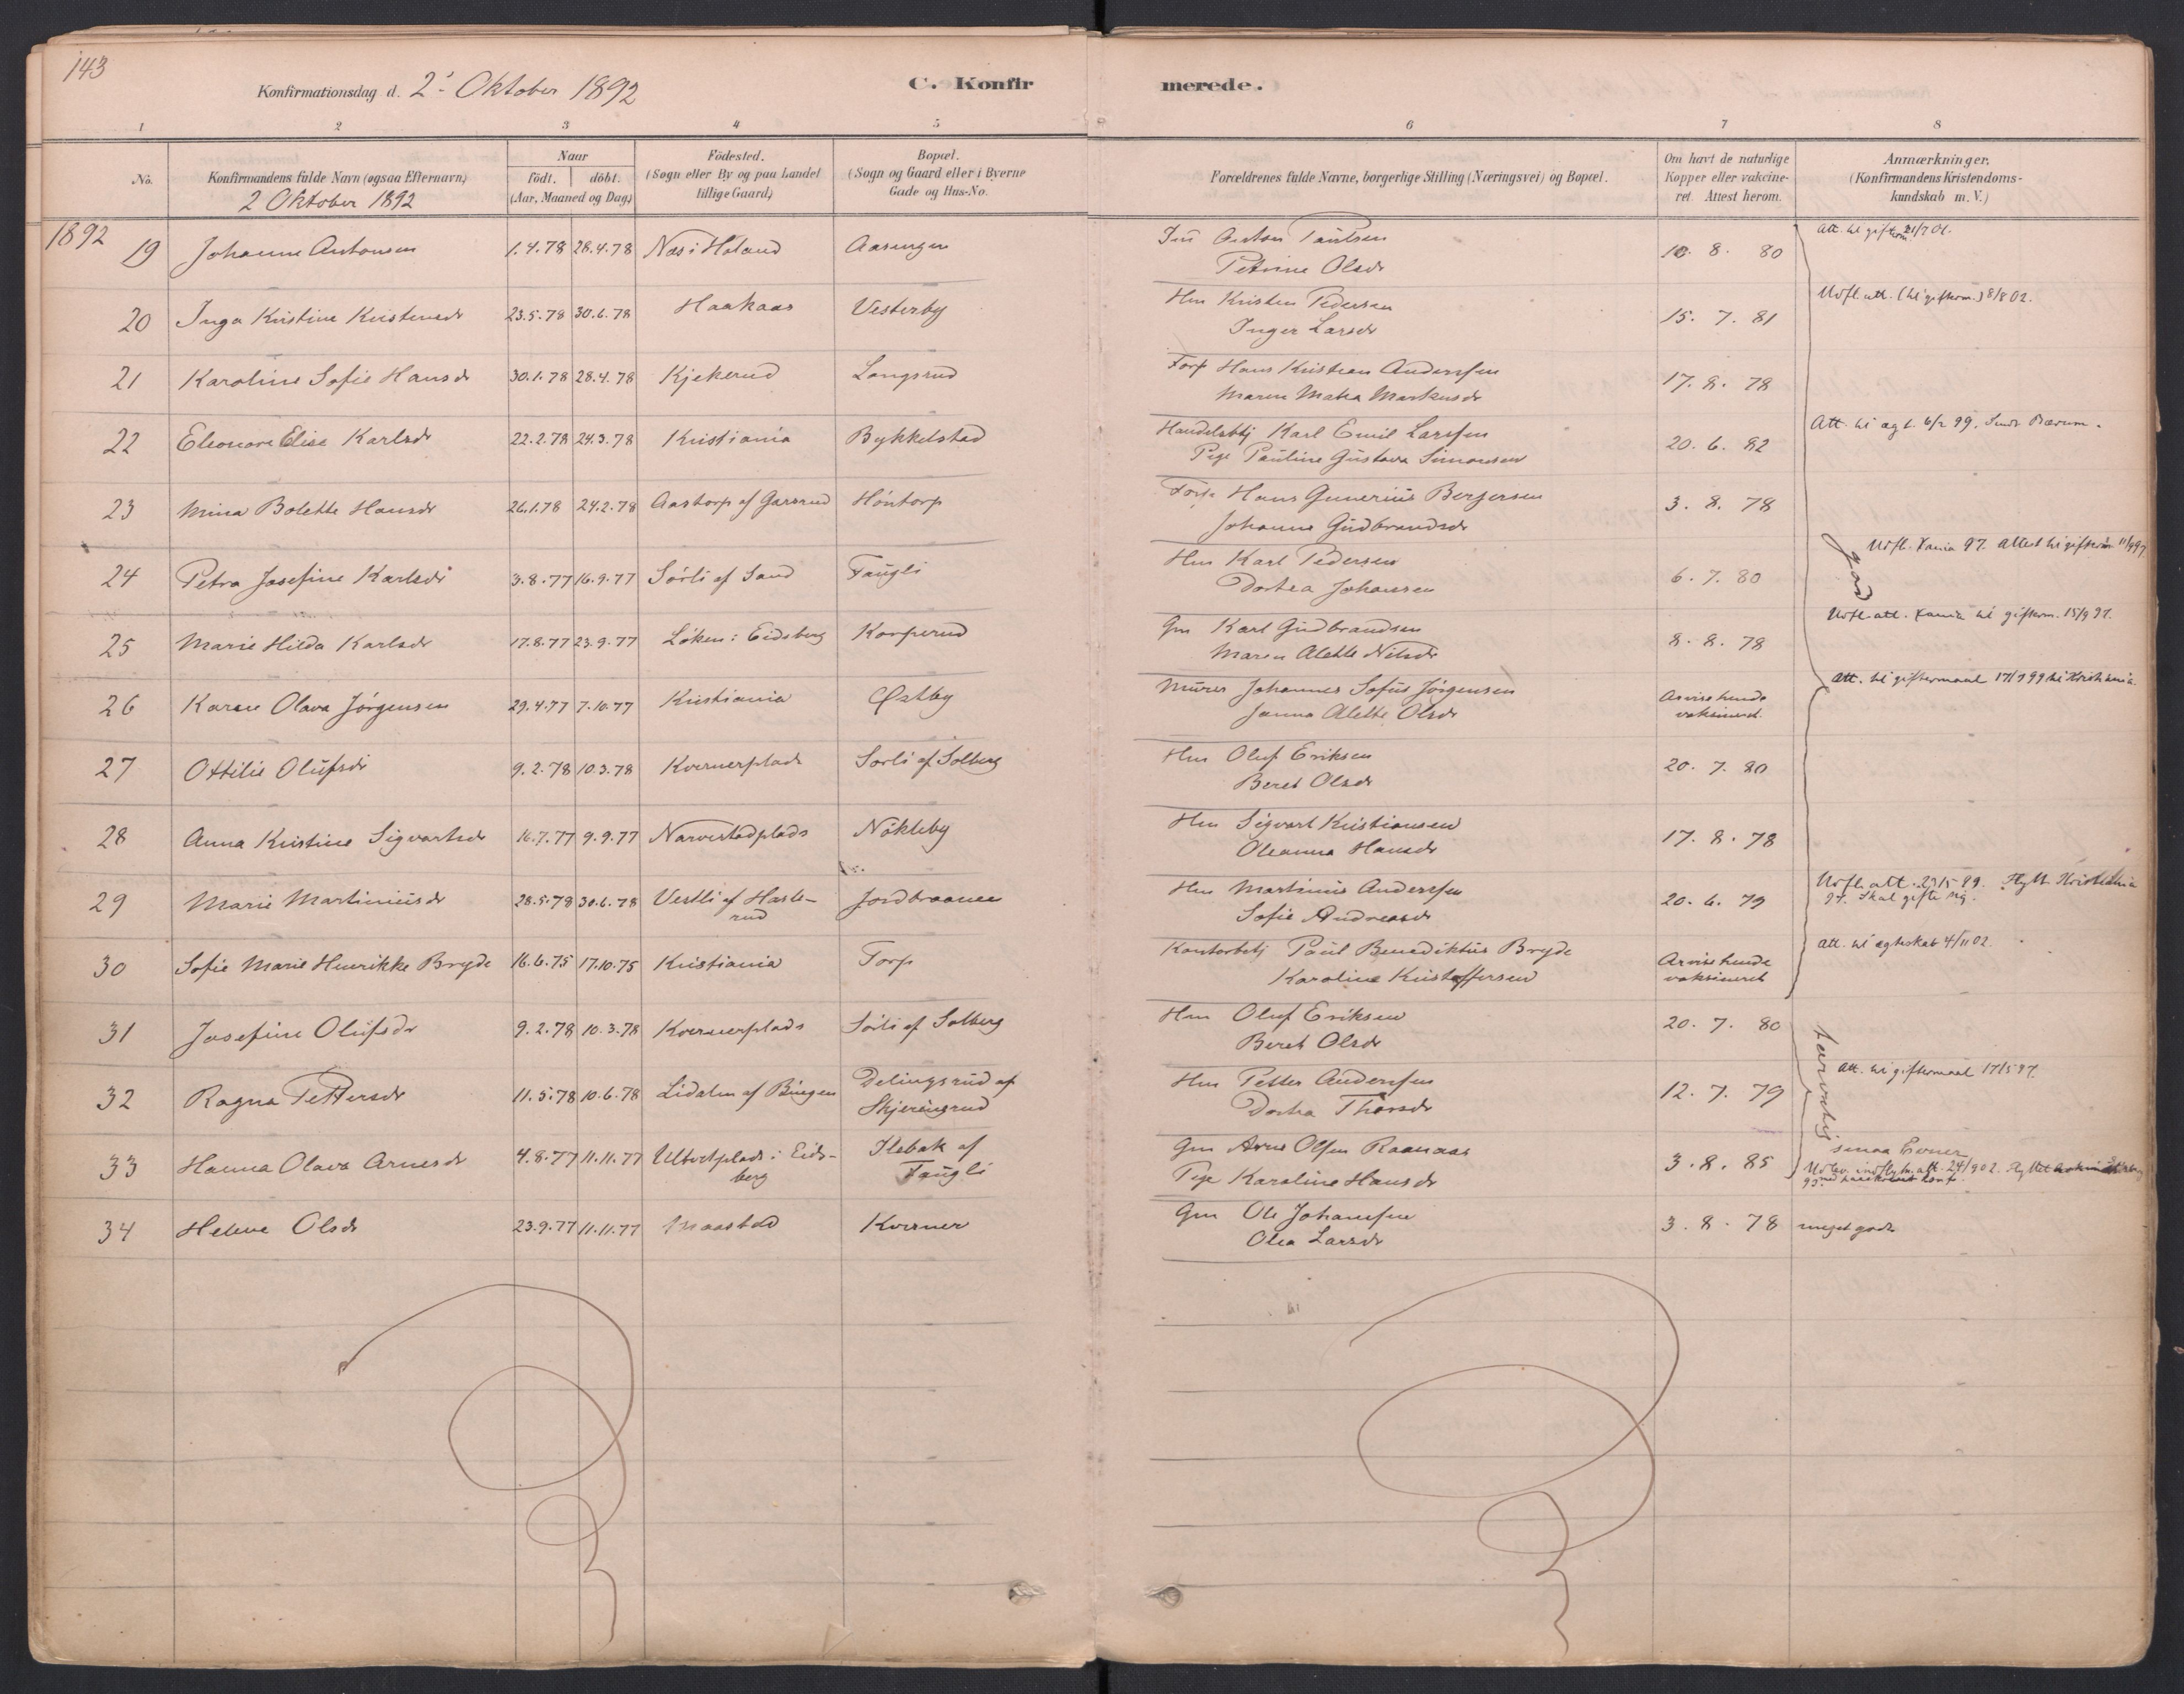 143
Konfirmationsdag d. 2' Oktober 1892
C. Konfirmerede.
1 2 3 4 5 6 7 8
No.
Konfirmandens fulde Navn (ogsaa Efternavn)
2 Oktober 1892
Naar
födt. döbt.
(Aar, Maaned og Dag)
Födested.
(Sogn eller By og paa Landet
tillige Gaard)
Bopæl.
(Sogn og Gaard eller i Byerne
Gade og Hus-No.
Forældrenes fulde Navne, borgerlige Stilling (Næringsvei) og Bopæl.
Om havt de naturlige
Kopper eller vakcine-
ret. Attest herom.
Anmærkninger.
(Konfirmandens Kristendoms-
kundskab m. V.)
1892
19 Johanne Antonsen 1.4.78 28.4.78 Næs i Høland Aasengen Anton Paulsen 10. 8. 80
Petrine Olsdr
20 Inga Kristine Kristensdr 23.5.78 30.6.78 Haakaas Vesterby Hm Kristen Pedersen 15. 7. 81 Udfl. att. (til giftem.) 8/8 02.
Inger Larsdr
21 Karoline Sofie Hansdr 30.1.78 28.4.78 Kjekerud Langsrud Forp Hans Kristian Anderssen 17. 8. 78
Maren Mathea Markusdr
22 Eleonore Elise Karlsdr 22.2.78 24.3.78 Kristiania Bykkelstad Handelsbtj Karl Emil Larssen 20. 6. 82 Att. til ægt. 6/2 99. Bærum.
Pige Pauline Gustava Simonsen
23 Mina Bolette Hansdr 26.1.78 24.2.78 Aastorp af Gaasrud Høntorp Forp Hans Gunerius Bergersen 3. 8. 78
Johanne Gudbrandsdr
24 Petra Josefine Karlsdr 3.8.77 16.9.77 Sørli af Sand Faugli Hm Karl Pedersen 6. 7. 80 god Udfl. Xania 97. Attest til giftem
Dorthea Johansen
25 Marie Hilda Karlsdr 17.8.77 23.9.77 Løken i Eidsberg Korperud Gm Karl Gudbrandsen 8. 8. 78 Udfl. att. Xania til giftem. 15/9 97.
Maren Alette Nilsdr
26 Karen Olava Jørgensen 29.4.77 7.10.77 Kristiania Østby Murer Johannes Sofus Jørgensen Arvisende Att. til giftermaal 17/9 99 til Kristiania
Janna Alette Olsdr vaksineret.
27 Ottilie Olufsdr 9.2.78 10.3.78 Kvernerplads Sørli af Solberg Hm Oluf Eriksen 20. 7. 80
Beret Olsdr
28 Anna Kristine Sigvartsdr 16.7.77 9.9.77 Narvestadplads Nökleby Hm Sigvart Kristiansen 17. 8. 78
Oleanna Hansdr
29 Marie Martiniusdr 28.5.78 30.6.78 Vestli af Hasle- Jordbraaten Hm Martinius Anderssen 20. 6. 79 Udfl. att. 29/5 99. Flytt. Kristiania
rud Sofie Andreasdr 97. Skal gifte sig.
30 Sofie Marie Henrikke Bryde 16.6.75 17.10.75 Kristiania Torp Kontorbetj Paul Benediktus Bryde vaksineret att. til ægteskab 4/11 02.
Karoline Kristoffersen
31 Josefine Olufsdr 9.2.78 10.3.78 Kvernerplads Sørli af Solberg Hm Oluf Eriksen 20. 7. 80
Beret Olsdr
32 Ragna Pettersdr 11.5.78 10.6.78 Lidalen af Bingen Delingsrud af Hm Petter Anderssen 12. 7. 79 Att. til giftermaal 17/5 97.
Skjerengrud Dorthea Thorsdr
33 Hanna Olava Arnesdr 4.8.77 11.11.77 Ultvetplads i Eids- Ilebak af Gm Arne Olsen Raanaas 3. 8. 85 smaa Evner
berg Faugli Pige Karoline Hansdr
34 Helene Olsdr 23.9.77 11.11.77 Maastad Kverner Gm Ole Johanssen 3. 8. 78 meget godt
Olea Larsdr